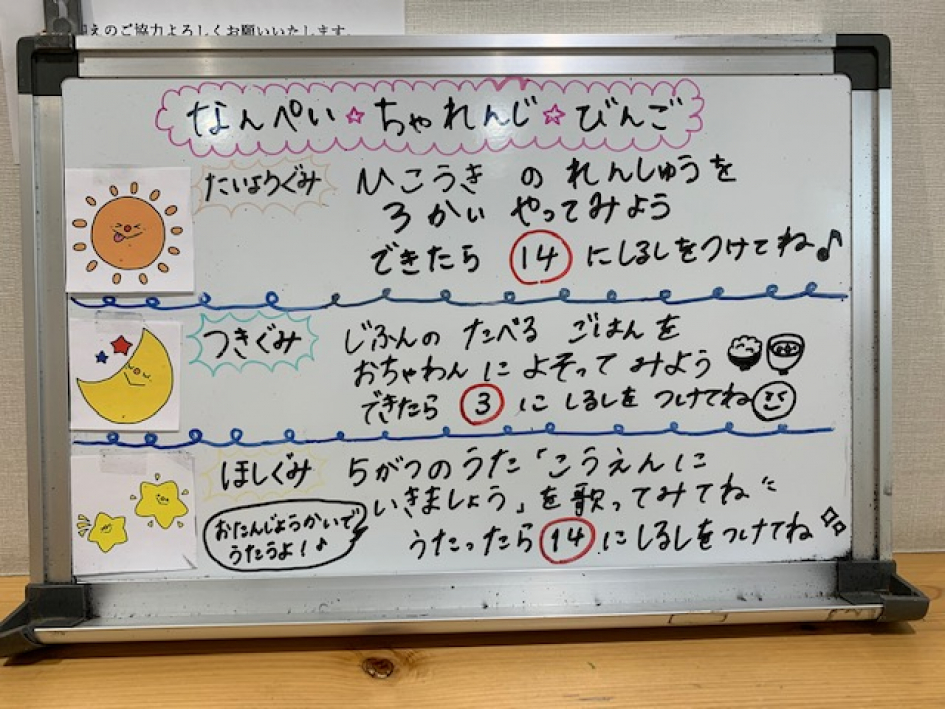 えのご協力よろしくお願いいたします。
なんぺい☆ちゃれんじ☆びんご
たいようぐみ
ひこうき の れんしゅうを
3 かい やってみよう
できたら 14 にしるしをつけてね♪
つきぐみ
じぶんの たべる ごはん を
おちゃわん に よそって みよう
できたら 3 に しるしを つけてね
ほしぐみ
5がつのうた「こうえんに
いきましょう」を歌ってみてね
おたんじょうかいで
うたうよ!♪
うたったら 14 にしるしをつけてね